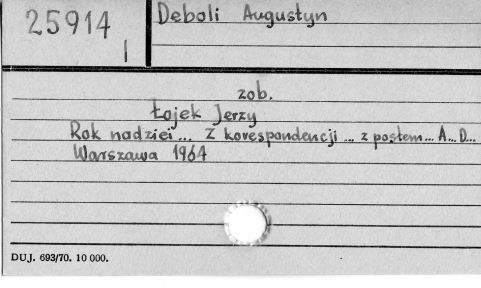 25914
I
Deboli Augustyn
zob.
Łojek Jerzy
Rok nadziei... Z korespondencji ... z posłem... A... D...
Warszawa 1964
DUJ. 693/70. 10 000.